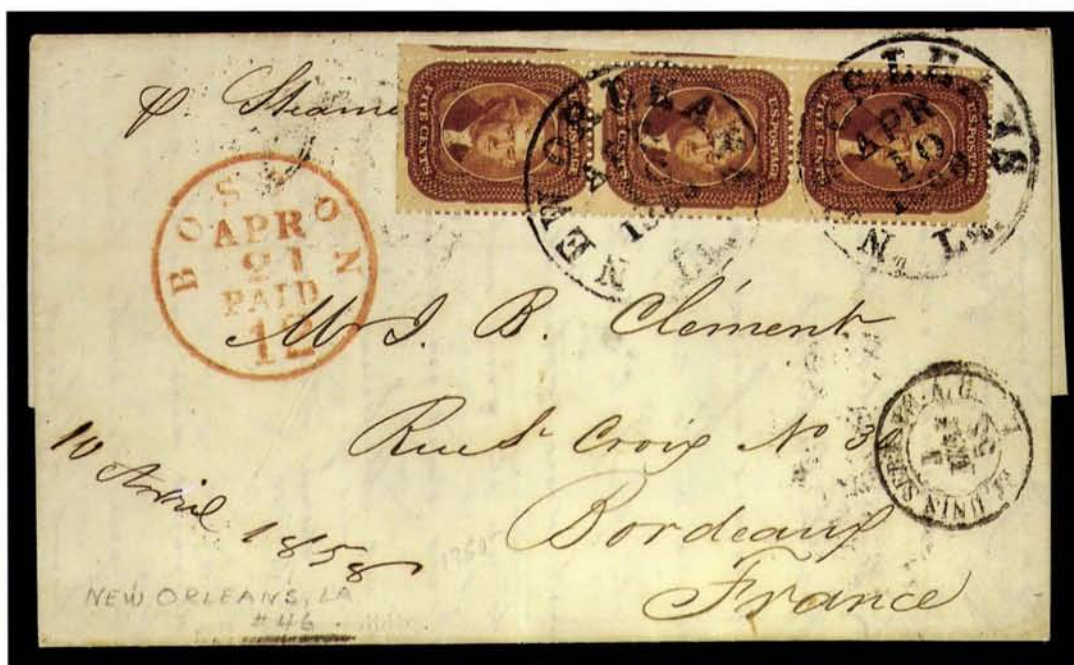 p. Steamer
U.S. POSTAGE
FIVE CENTS
U.S. POSTAGE
FIVE CENTS
U.S. POSTAGE
FIVE CENTS
NEW ORLEANS
LA.
APR
10
BOSTON
APR
21
PAID
12
Mr J. B. Clément
Rue St Croix No 30
Bordeaux
France
10 Avril 1858
NEW ORLEANS, LA
#46